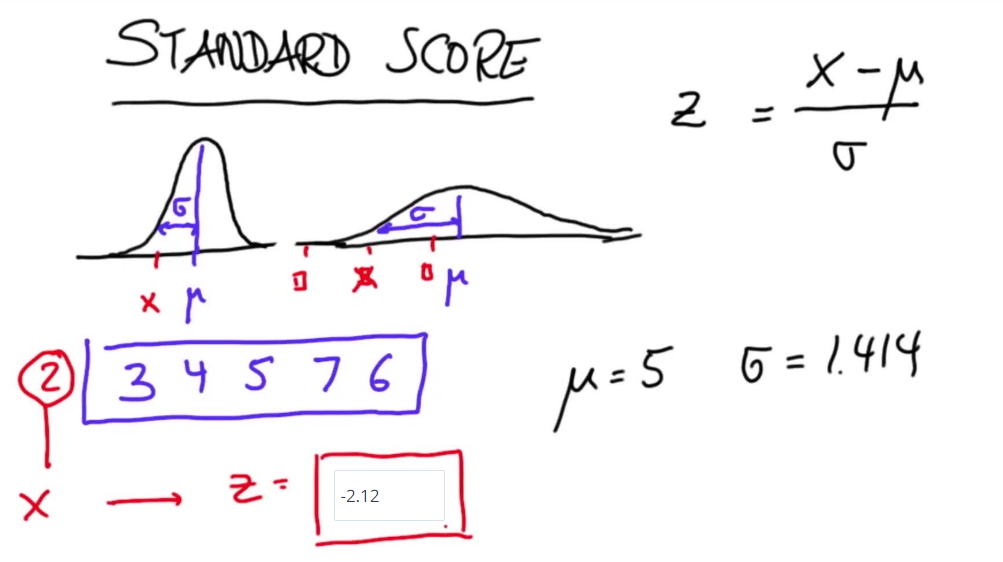 STANDARD SCORE
z = x - μ / σ
σ σ
x μ
μ
2 3 4 5 7 6
μ = 5 σ = 1.414
x → z = -2.12